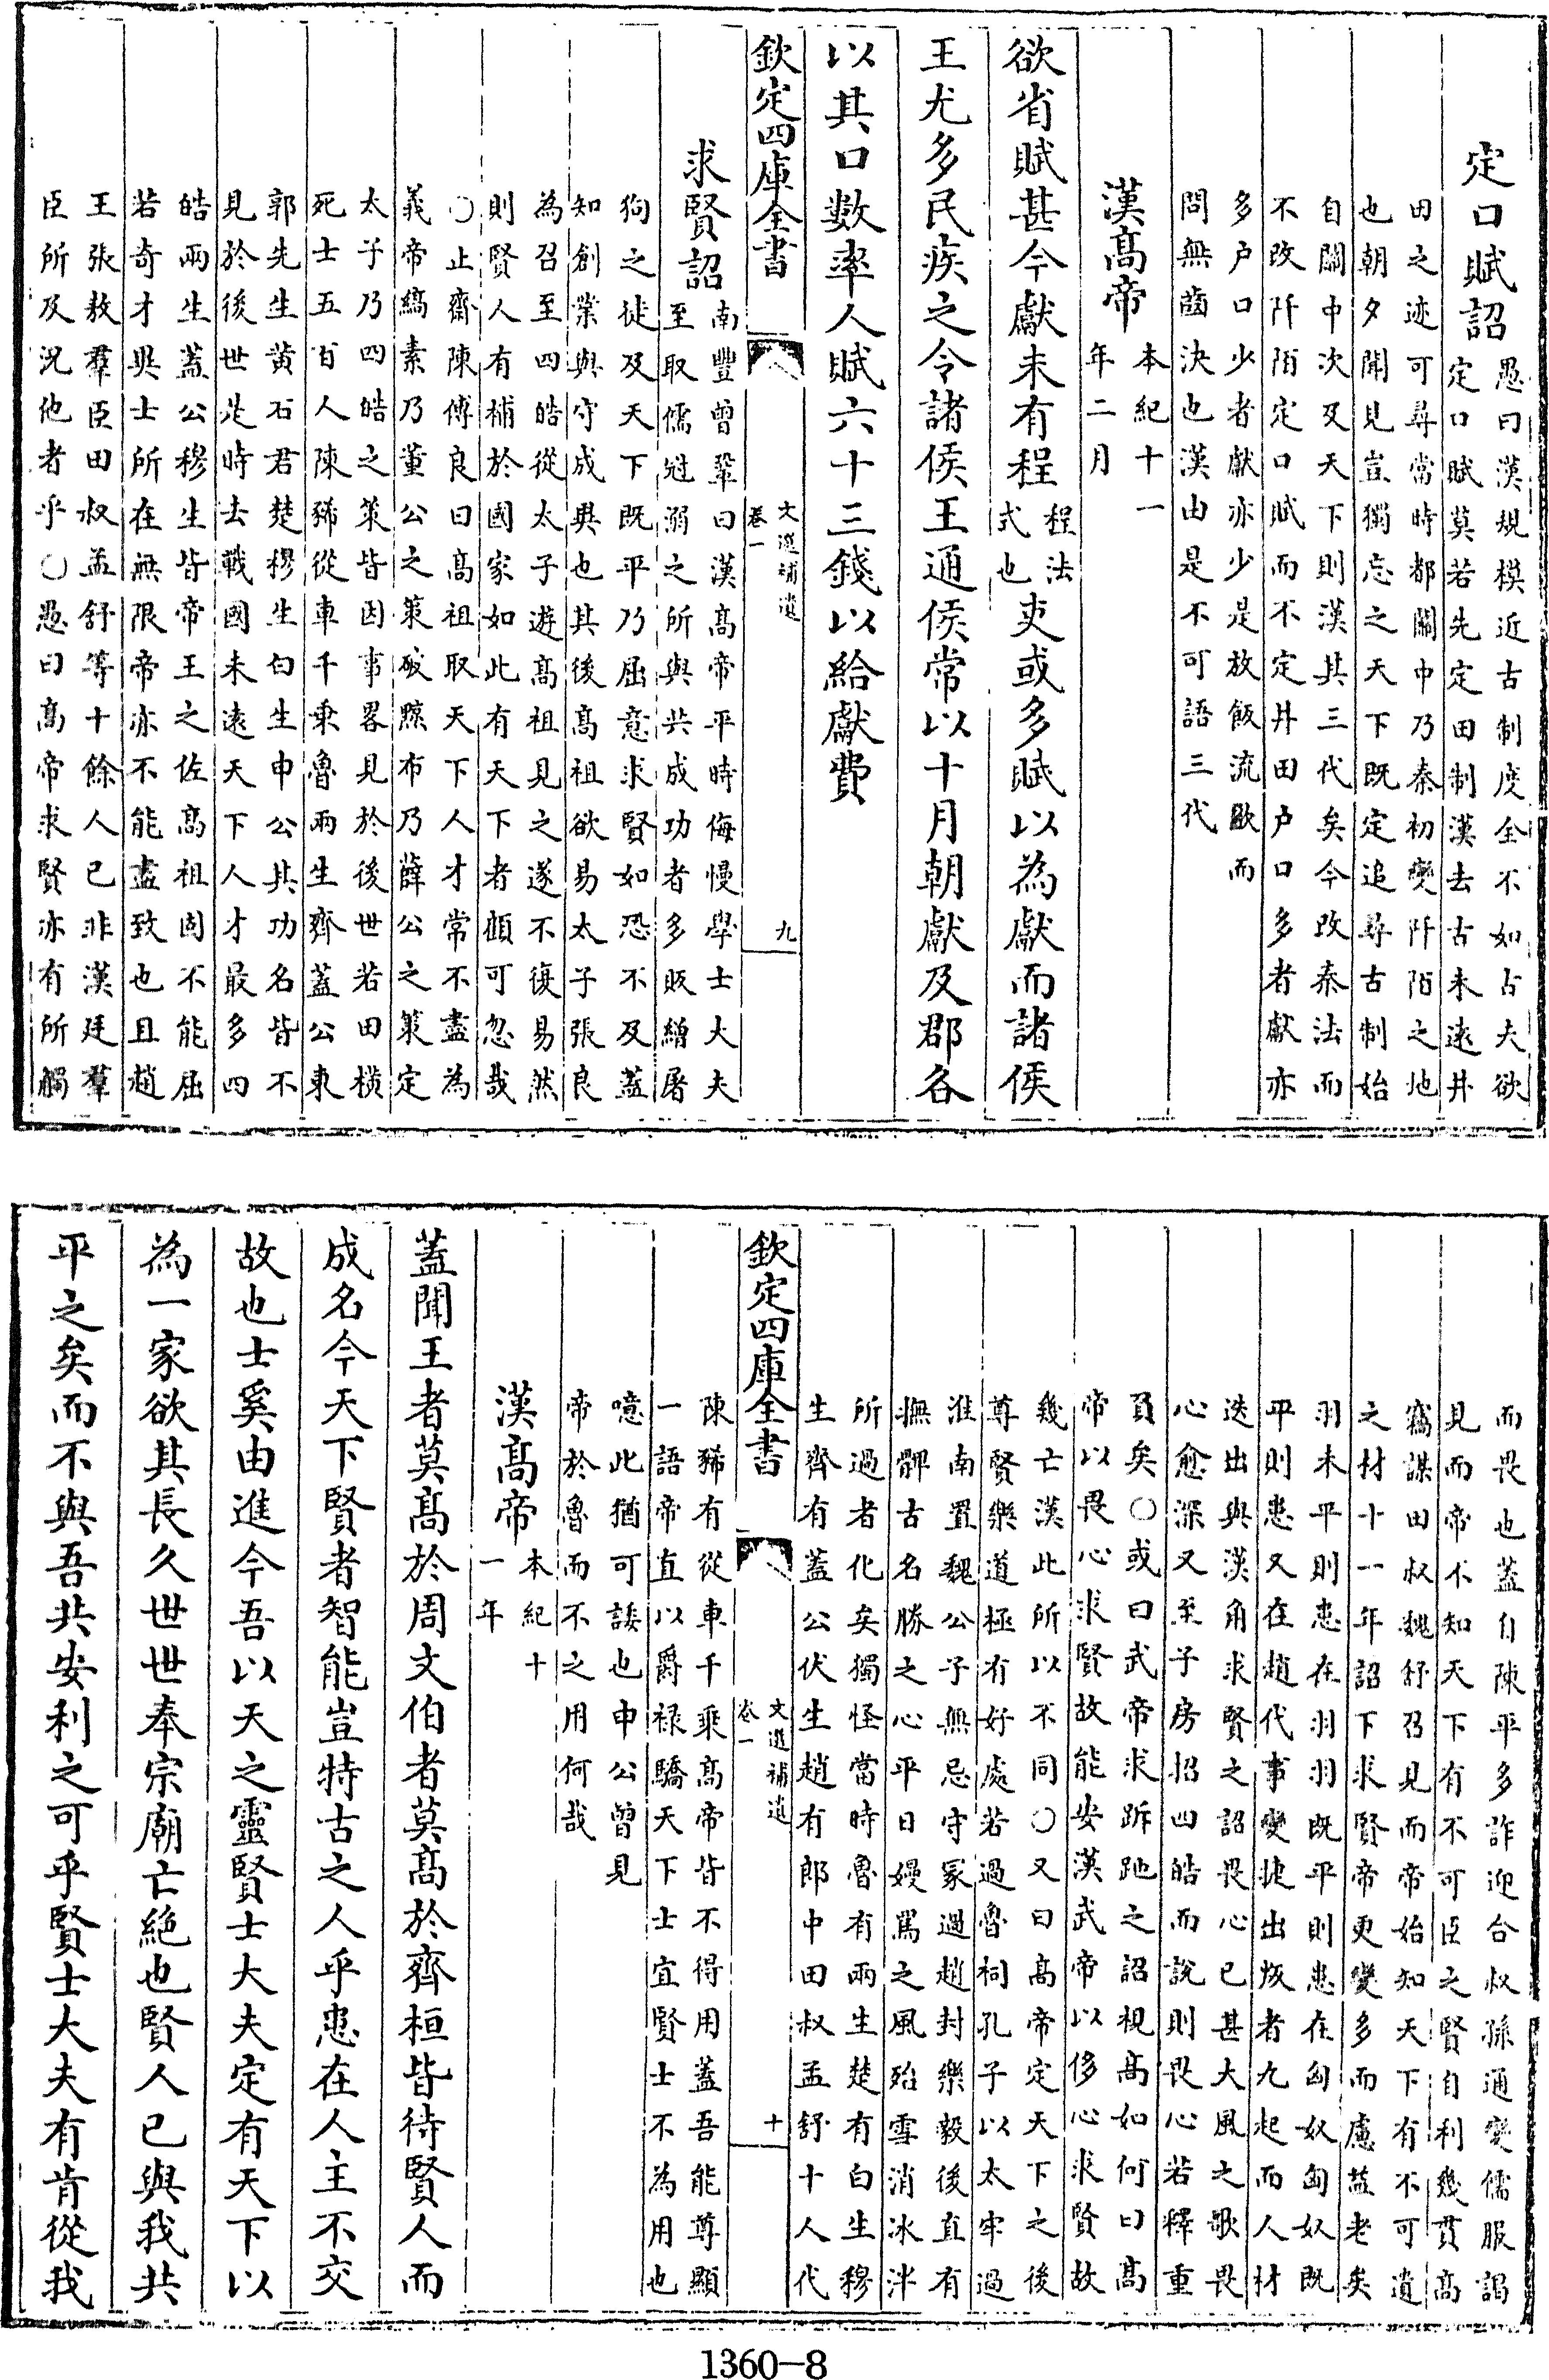 定口賦詔愚曰漢規模近古制度全不如古夫欲
定口賦莫若先定田制漢去古未遠井
田之迹可尋常時都關中乃秦初變阡陌之地
也朝夕聞見豈獨忘之天下既定追尋古制始
自關中次及天下則漢其三代矣今改秦法而
不改阡陌定口賦而不定井田户口多者獻亦
多户口少者獻亦少是放飯流歠而
問無齒決也漢由是不可語三代
漢髙帝本紀十一
年二月
欲省賦甚今獻未有程程法
式也吏或多賦以為獻而諸侯
王尤多民疾之令諸侯王通侯常以十月朝獻及郡各
以其口數率人賦六十三錢以給獻費
欽定四庫全書
文選補遺
卷一
九
求賢詔南豐曾鞏曰漢髙帝平時侮慢學士大夫
至取儒冠溺之所與共成功者多販繒屠
狗之徒及天下既平乃屈意求賢如恐不及蓋
知創業與守成異也其後髙祖欲易太子張良
為召至四皓從太子遊髙祖見之遂不復易然
則賢人有補於國家如此有天下者顧可忽哉
○止齋陳傅良曰髙祖取天下人才常不盡為
義帝縞素乃董公之策破黥布乃薛公之策定
太子乃四皓之策皆因事畧見於後世若田横
死士五百人陳豨從車千乘魯兩生齊蓋公東
郭先生黄石君楚穆生白生申公其功名皆不
見於後世是時去戰國未遠天下人才最多四
皓兩生蓋公穆生皆帝王之佐髙祖固不能屈
若奇才異士所在無限帝亦不能盡致也且趙
王張敖羣臣田叔孟舒等十餘人已非漢廷羣
臣所及况他者乎○愚曰髙帝求賢亦有所觸
而畏也蓋自陳平多詐迎合叔孫通變儒服謁
見而帝不知天下有不可臣之賢自利幾貫髙
竊謀田叔魏舒召見而帝始知天下有不可遺
之材十一年詔下求賢帝更變多而慮益老矣
羽未平則患在羽羽既平則患在匈奴匈奴既
平則患又在趙代事變捷出叛者九起而人材
迭出與漢角求賢之詔畏心已甚大風之歌畏
心愈深又至子房招四皓而説則畏心若釋重
負矣○或曰武帝求跅跎之詔視髙如何曰髙
帝以畏心求賢故能安漢武帝以侈心求賢故
幾亡漢此所以不同○又曰髙帝定天下之後
尊賢樂道極有好處若過魯祠孔子以太牢過
淮南置魏公子無忌守冢過趙封樂毅後直有
撫髀古名勝之心平日嫚罵之風殆雪消冰泮
所過者化矣獨怪當時魯有兩生楚有白生穆
生齊有蓋公伏生趙有郎中田叔孟舒十人代
欽定四庫全書
文選補遺
卷一
十
陳豨有從車千乘髙帝皆不得用蓋吾能尊顯
一語帝直以爵祿驕天下士宜賢士不為用也
噫此猶可諉也申公曾見
帝於魯而不之用何哉
漢髙帝本紀十
一年
蓋聞王者莫髙於周文伯者莫髙於齊桓皆待賢人而
成名今天下賢者智能豈特古之人乎患在人主不交
故也士奚由進今吾以天之靈賢士大夫定有天下以
為一家欲其長久世世奉宗廟亡絶也賢人已與我共
平之矣而不與吾共安利之可乎賢士大夫有肯從我
1360-8